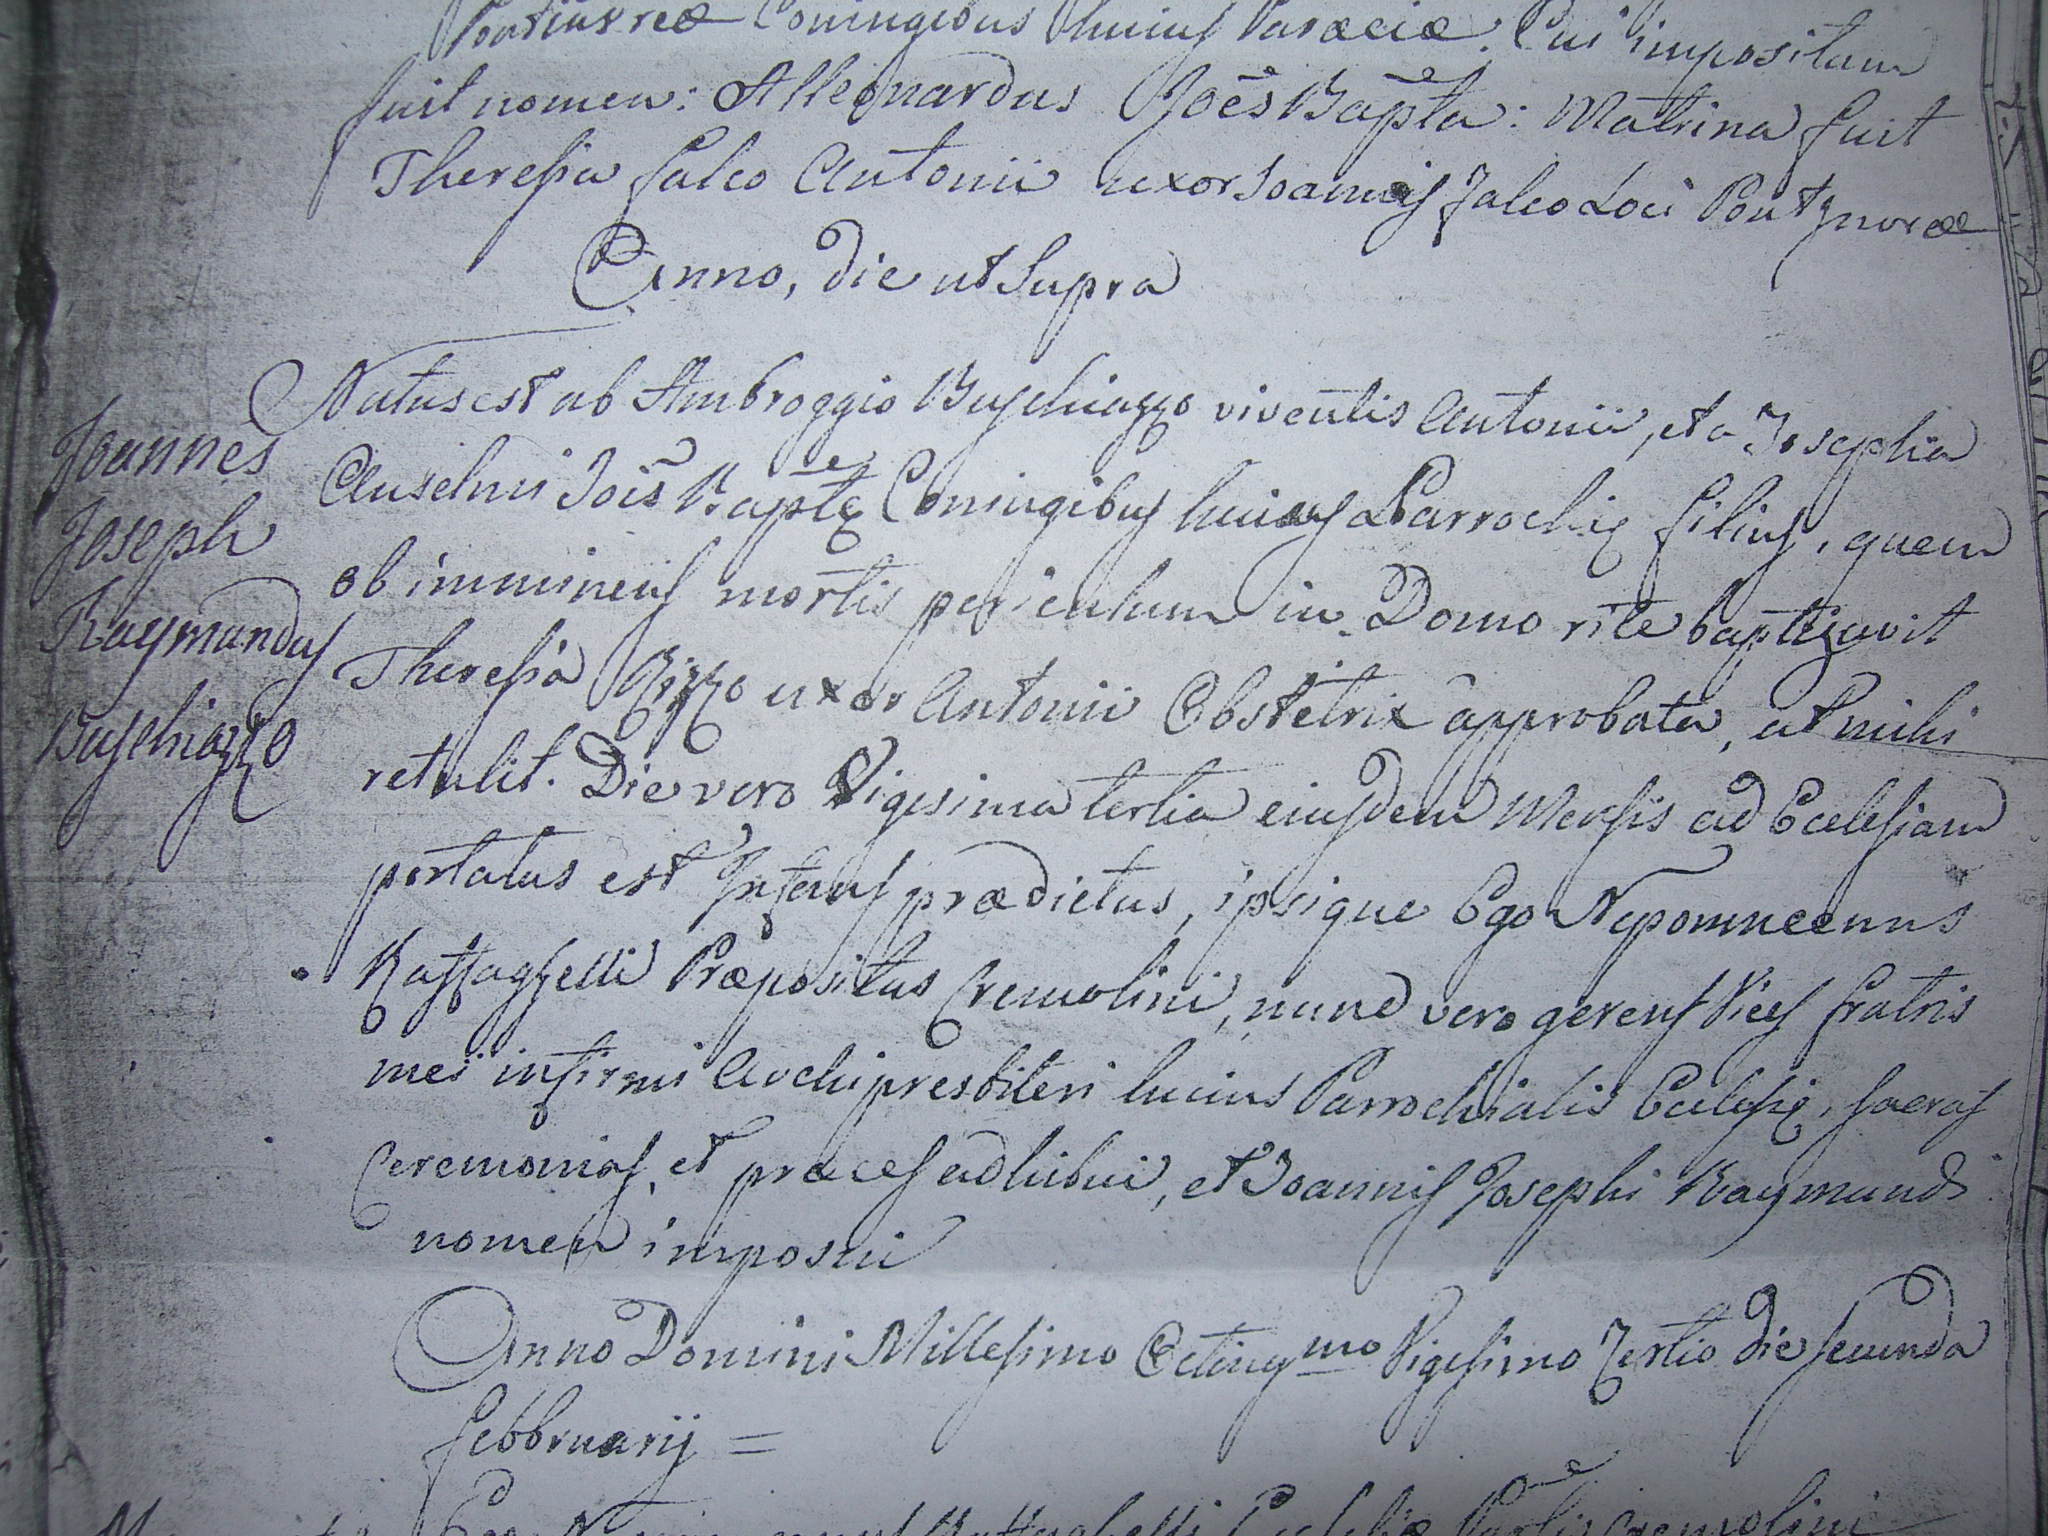 Pontinvreæ Coniugibus huius Paræciæ. Cui impositum
fuit nomen: Alleonardus Joes Bapta: Matrina fuit
Theresia Falco Antonii uxor Joannis Falco Loci Pontjnvreæ
Anno, die ut Supra
Natus est ab Ambroggio Buschiazzo viventis Antonii, et a Josepha
Anselmi Jois Baptę Coniugibus huius Parrochię filius, quem
ob imminens mortis periculum in Domo rite baptizavit
Theresia Rizzo uxor Antonii Obstetrix approbata, ut mihi
retulit. Die vero Vigesima tertia eiusdem Mensis ad Eccelsiam
portatus est Infans prædictus, ipsique Ego Nepomucenus
Præpositus Cremolini, nunc vero gerens Vices fratris
mei infirmi Archipresbiteri huius Parrochialis Eccelsię, sacras
Ceremonias, et præces adhibui, et Joannis Josephi Raymundi
nomen imposui
Joannes
Joseph
Raymundus
Buschiazzo
Anno Domini Millesimo Octingmo Vigesimo Tertio die secunda
Febbruarij =